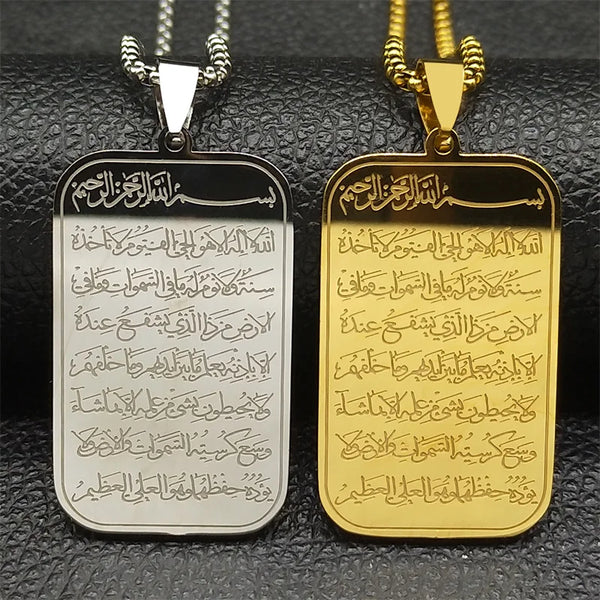 بسم الله الرحمن الرحيم
الله لا إله الا هو الحي القيوم لا تأخذه
سنة ولا نوم له ما في السموات وما في
الارض من ذا الذي يشفع عنده
الا باذنه يعلم ما بين ايديهم وما خلفهم
ولا يحيطون بشيء من علمه الا بما شاء
وسع كرسيه السموات والارض ولا
يؤده حفظهما وهو العلي العظيم
بسم الله الرحمن الرحيم
الله لا إله الا هو الحي القيوم لا تأخذه
سنة ولا نوم له ما في السموات وما في
الارض من ذا الذي يشفع عنده
الا باذنه يعلم ما بين ايديهم وما خلفهم
ولا يحيطون بشيء من علمه الا بما شاء
وسع كرسيه السموات والارض ولا
يؤده حفظهما وهو العلي العظيم